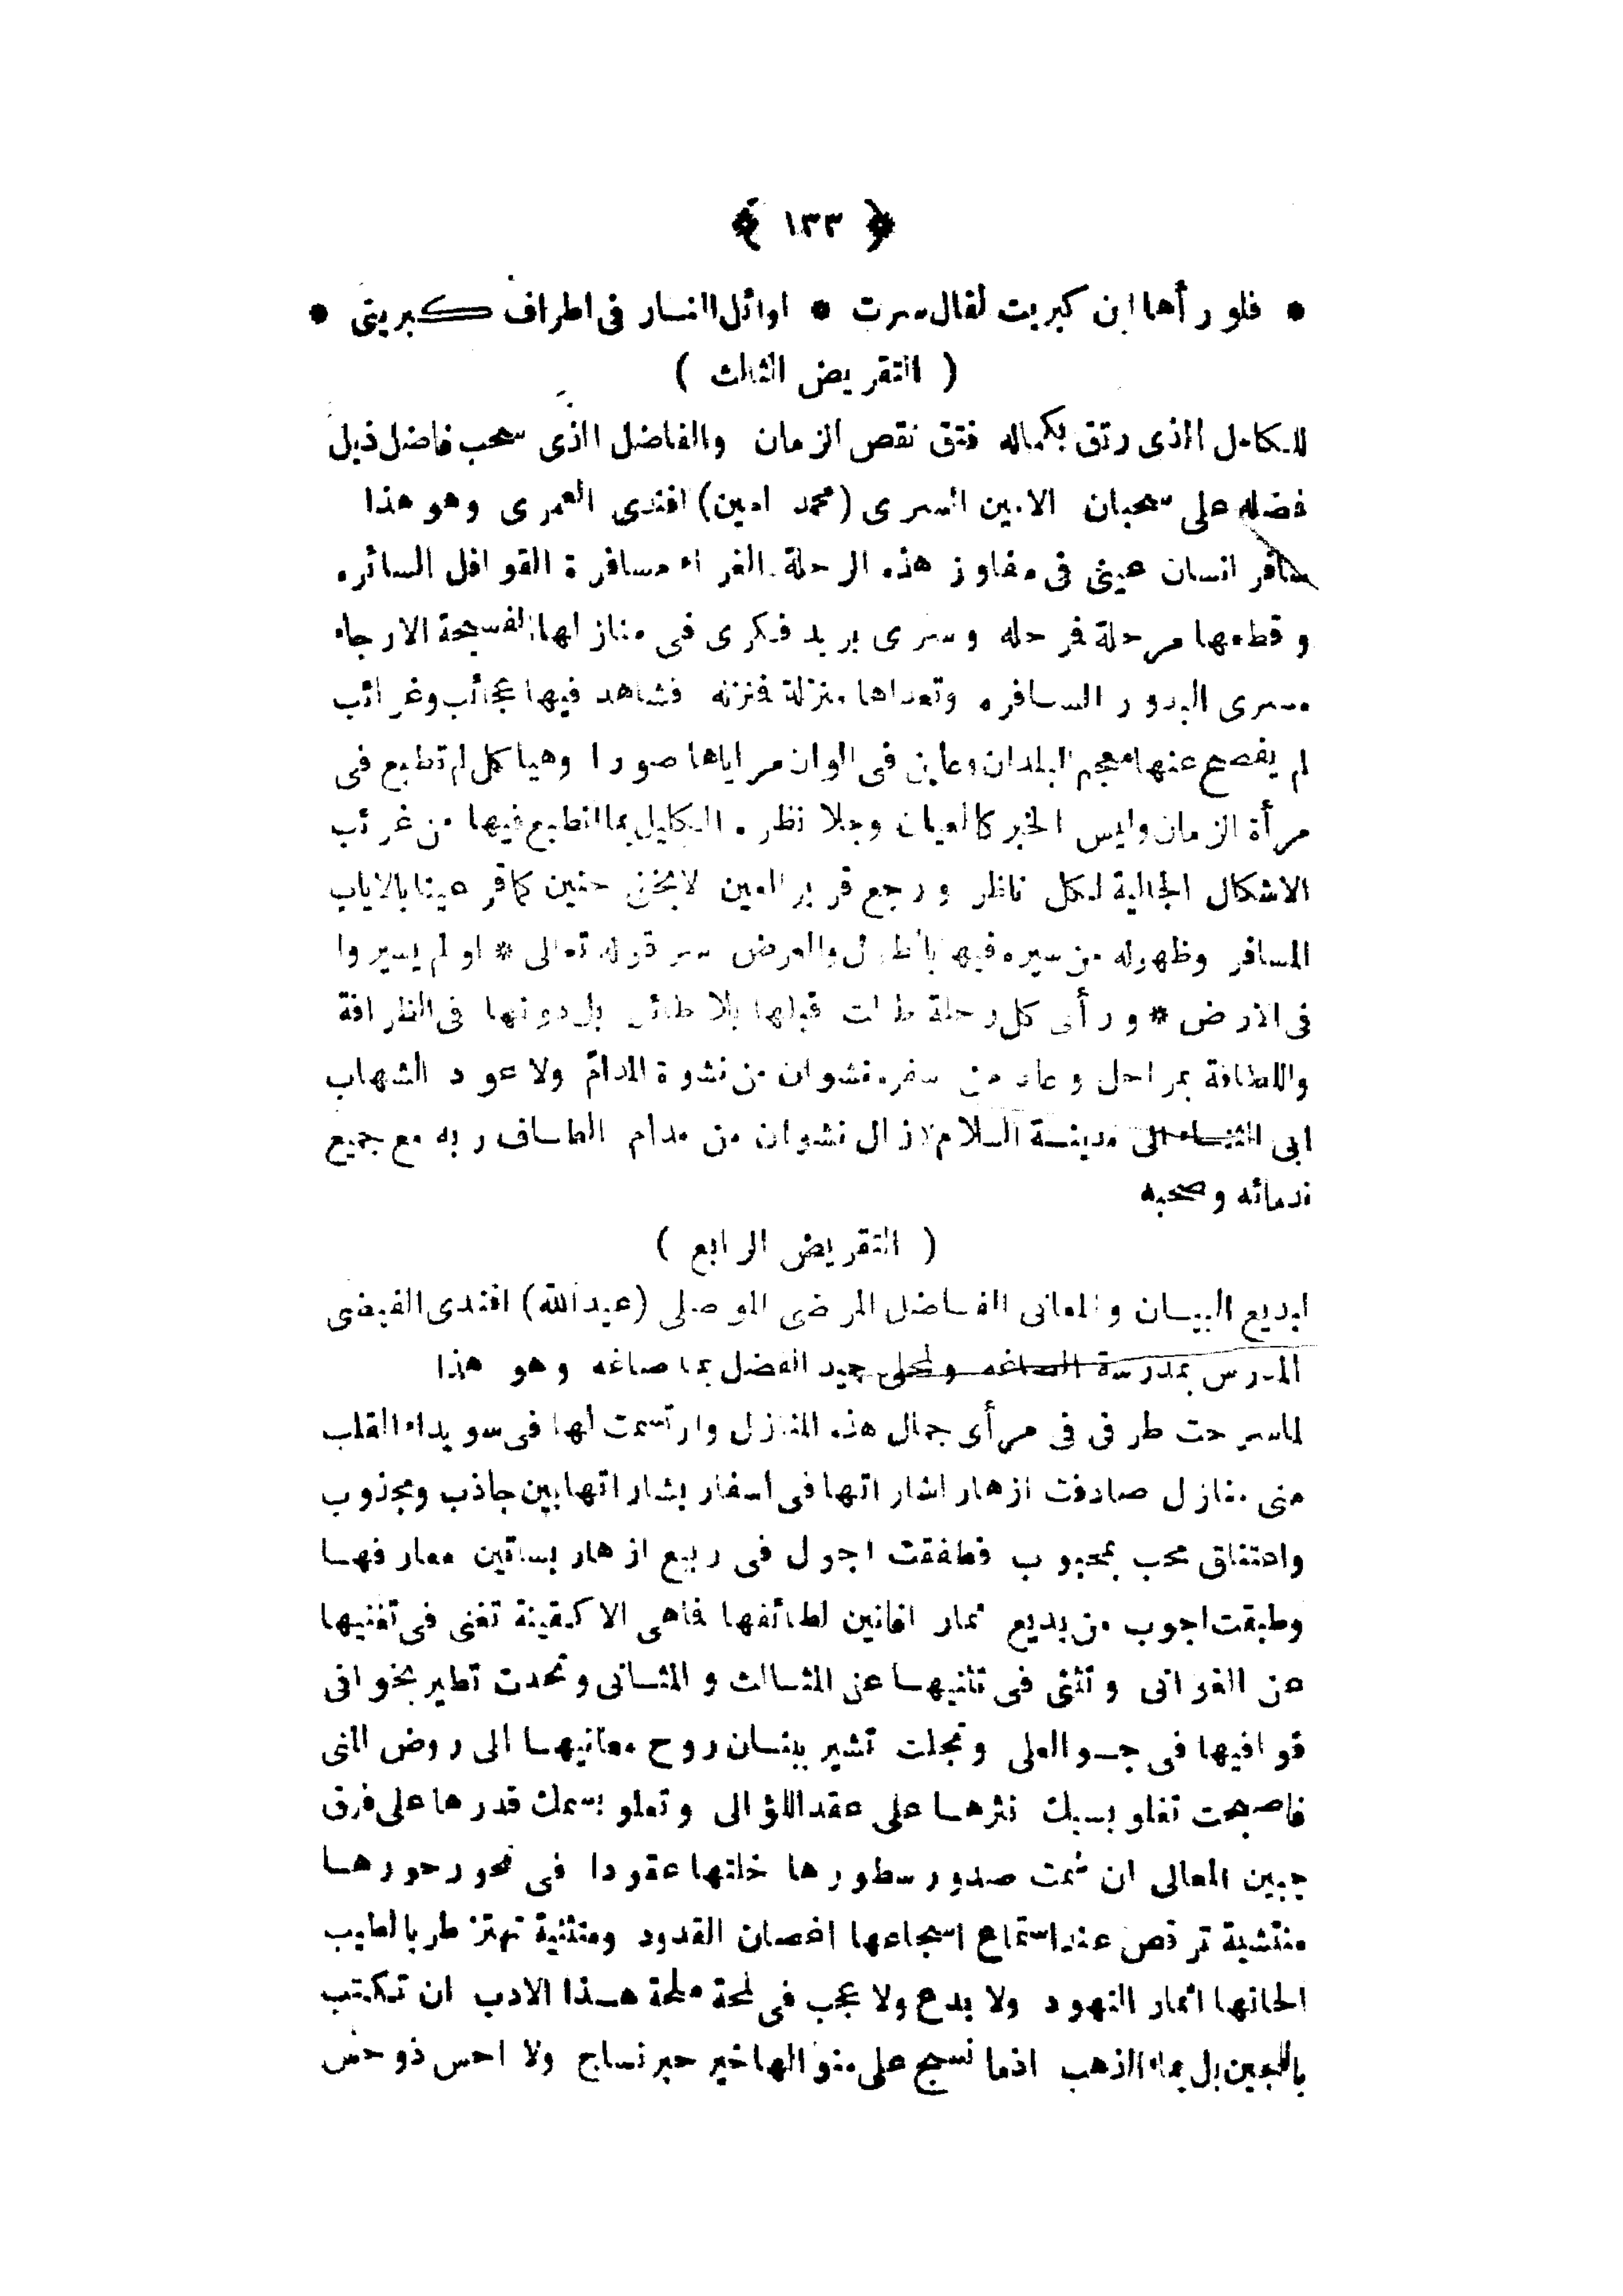 ﴿ ١٣٣ ﴾
* فلو رأها ابن كبريت لقال سرت * اوائل النار فى اطراف كبريتى *
( التقريض الثالث )
للكامل الذى رتق بكماله فتق نقص الزمان والفاضل الذى سحب فاضل ذيل
فضله على سحبان الامين السرى (محمد امين) افندى العمرى وهو هذا
سافر انسان عينى فى مفاوز هذه الرحلة الغراء مسافرة القوافل السائره
وقطعها مرحلة فرحله وسرى بريد فكرى فى منازلها الفسيحة الارجاء
مسرى البدور السافره وتعداها منزلة فنزله فشاهد فيها عجائب وغرائب
لم يفصح عنها معجم البلدان وعاين فى الوان مراياها صورا وهياكل لم تطبع فى
مرأة الزمان وليس الخبر كالعيان وجلا نظره الكليل بما انطبع فيها من غرائب
الاشكال الجالية لكل ناظر ورجع قرير العين لا بخفى حنين كما قر عينا بالاياب
المسافر وظهر له من سيره فيها بالطول والعرض سر قوله تعالى * او لم يسيروا
فى الارض * ورأى كل رحلة طالت قبلها بلا طائل بل دونها فى الظرافة
واللطافة بمراحل وعاد من سفره نشوان من نشوة المدام ولا عود الشهاب
ابى الثناء الى مدينة السلام لازال نشوان من مدام الطاف ربه مع جميع
ندمائه وصحبه
( التقريض الرابع )
لبديع البيان والمعانى الفاضل المرضى الموصلى (عبدالله) افندى الفيضى
المدرس بمدرسة الصاغه ولمحلى جيد الفضل بما صاغه وهو هذا
لما سرحت طرفى فى مرأى جمال هذه المنازل وارتسمت لها فى سويداء القلب
منى منازل صادفت ازهار اشاراتها فى اسفار بشاراتها بين جاذب ومجذوب
واعتناق محب بمحبوب فطفقت اجول فى ربيع ازهار بساتين معارفها
وطبقت اجوب من بديع ثمار افانين لطائفها فاهى الا كقينة تغنى فى تغنيها
عن الغوانى وتثنى فى تثنيها عن المثالث والمثانى وتحدت تطير بخوافى
قوافيها فى جو العلى وتجلت تشير ببنان روح معانيها الى روض المنى
فاصبحت تغلو بسبك نثرها على عقد اللؤالى وتعلو بسمك قدرها على فرق
جبين المعالى ان شمت صدور سطورها خلتها عقودا فى نحور حورها
منتشية ترقص عند استماع اسجاعها اغصان القدود ومنثنية تهتز طربا لطيب
الحانها اثمار النهود ولا بدع ولا عجب فى لمحة ملحة هذا الادب ان تكتب
باللجين بل بماء الذهب اذ ما نسج على منوالها خير حبر نساج ولا احس ذو حس